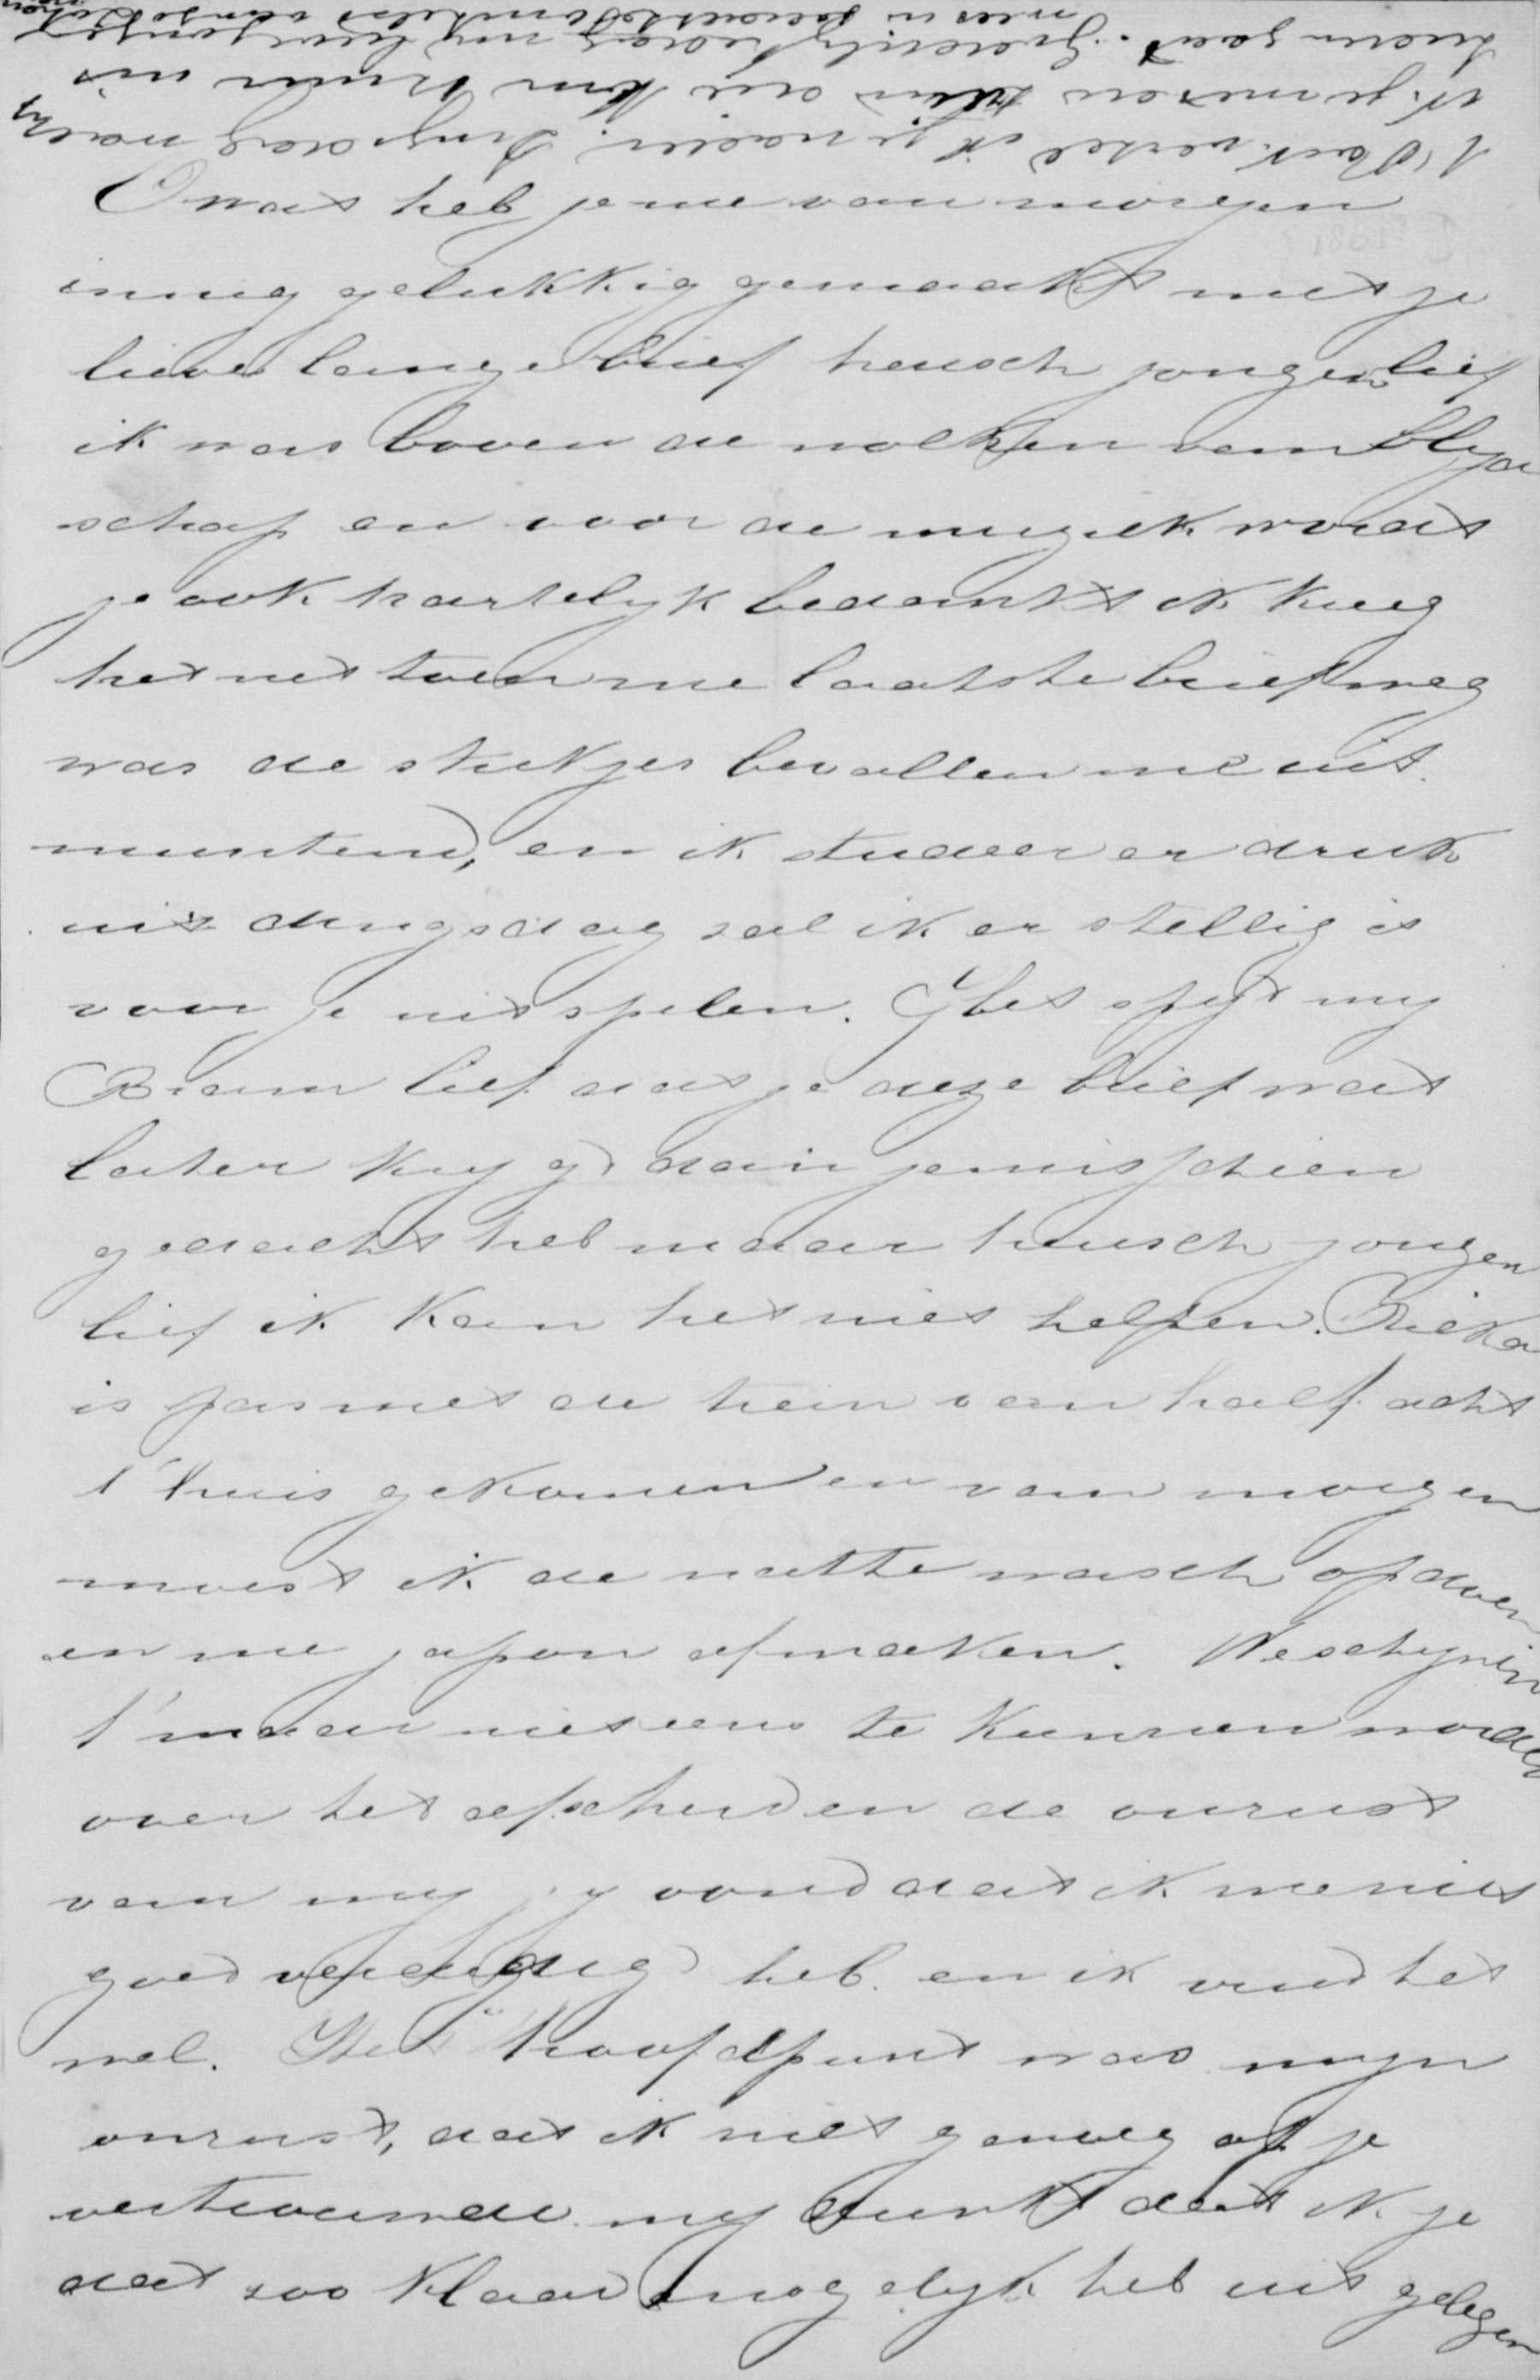 O wat heb je me van morgen
innig gelukkig gemaakt met je
lieve lange brief heusch jongen lief
ik was boven de wolken van blyd
schap en voor de muziek wordt
je ook hartelyk bedankt ik kreeg
het net toen me laatste brief weg
was de stukjes bevallen me uit
muntend, en ik studeer er druk
uit dingsdag zal ik er stellig is
voor je uit spelen. Het spyt my
Bram lief dat je deze brief wat
later krygt dan je misschien
gedacht heb maar heusch jongen
lief ik kan het niet helpen. Rieka
is pas met de trein van half acht
t'huis gekomen en van morgen
moest ik de natte wasch opdoen
en me japon afmaken. We schynen
t'maar niet eens te kunnen worden
over het afscheiden de onrust
van my jy vond dat ik me niet
goed verdedigd heb en ik vind het
wel. Het hoofdpunt was myn
onrust, dat ik niet genoeg op je
vertrouwde my dunkt dat ik je
dat zoo klaar mogelyk heb uit gelegen
t'Park vertel ik je nader. Dingsdag
ik je meteen die kan